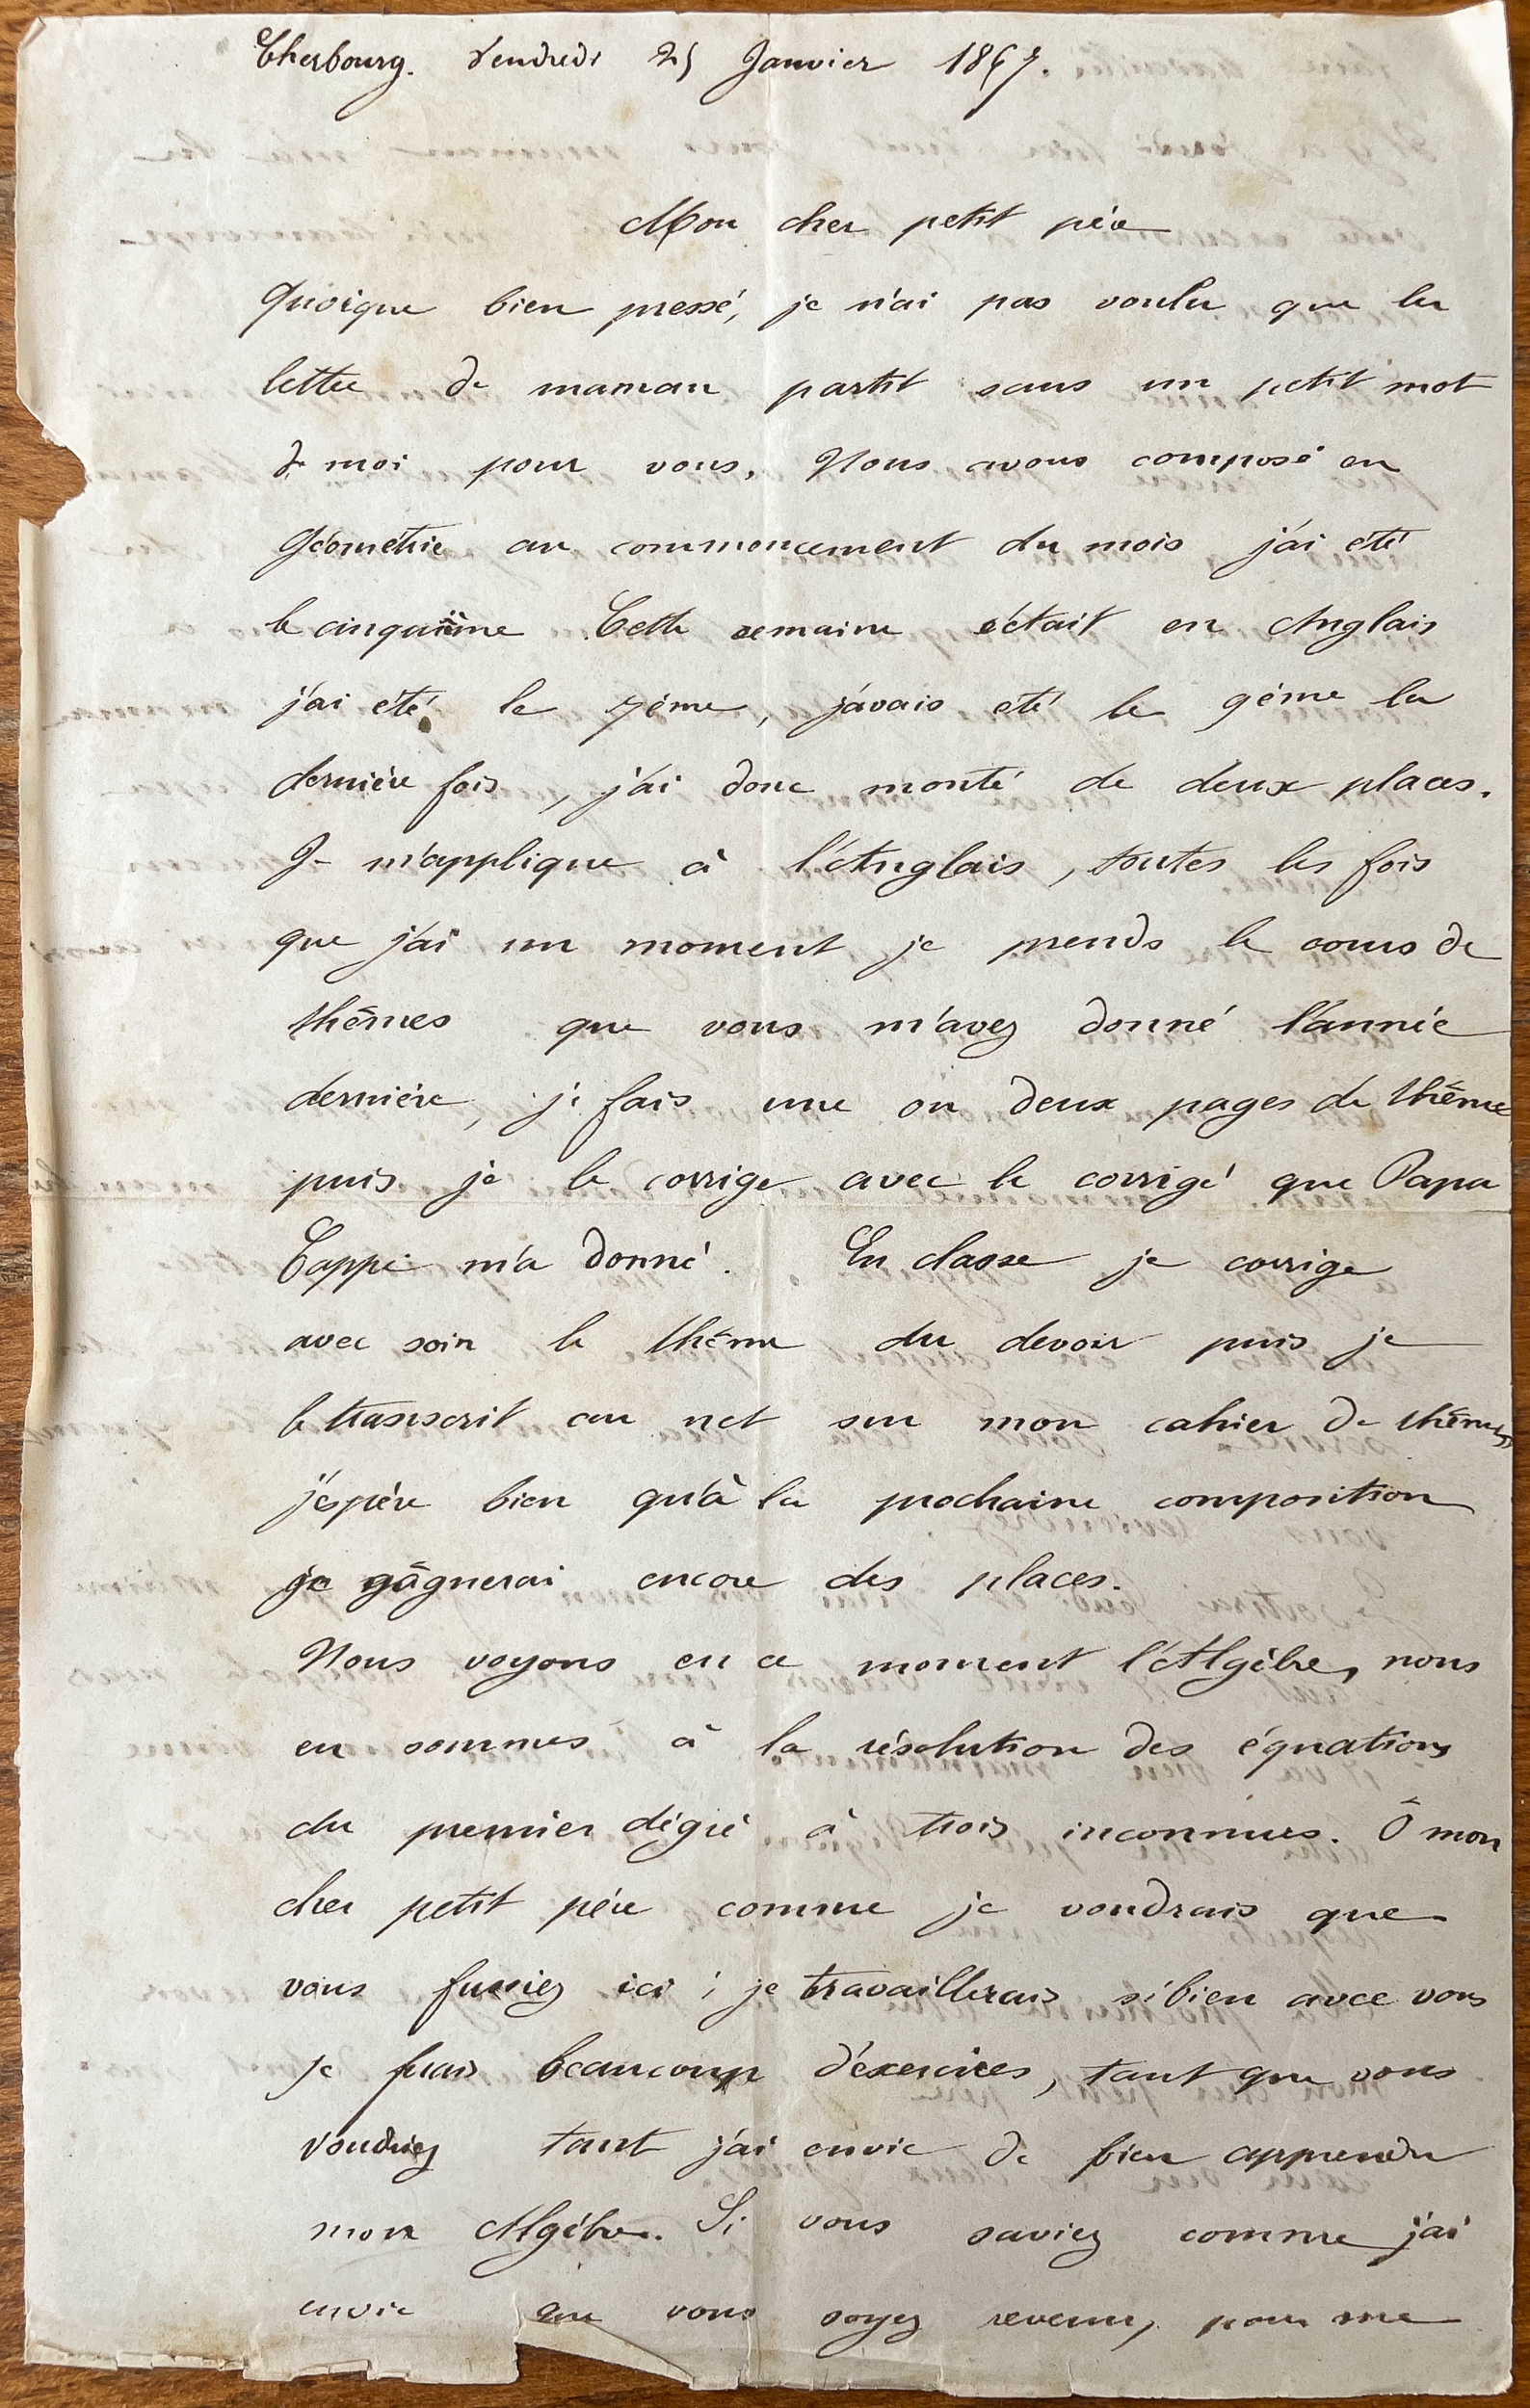 Cherbourg. Vendredi 25 Janvier 1867.
Mon cher petit père
Quoique bien pressé, je n'ai pas voulu que la
lettre de maman partit sans un petit mot
de moi pour vous. Nous avons composé en
Géométrie au commencement du mois j'ai été
le cinquième Cette semaine c'était en Anglais
j'ai été le 7ème, j'avais été le 9ème la
dernière fois, j'ai donc monté de deux places.
Je m'applique à l'Anglais, toutes les fois
que j'ai un moment je prends le cours de
thêmes que vous m'avez donné l'année
dernière, je fais une ou deux pages de thême
puis je le corrige avec le corrigé que Papa
m'a donné. En classe je corrige
avec soin le thême du devoir puis je
le transcrit au net sur mon cahier de thêmes
j'espère bien qu'à la prochaine composition
je gâgnerai encore des places.
Nous voyons en ce moment l'Algèbre, nous
en sommes à la résolution des équations
du premier dégré à trois inconnues. Ô mon
cher petit père comme je voudrais que
vous fussiez ici ; je travaillerais si bien avec vous
je ferais beaucoup d'éxercices, tant que vous
voudriez tant j'ai envie de bien apprendre
mon Algèbre. Si vous saviez comme j'ai
envie que vous soyez revenu, pour me